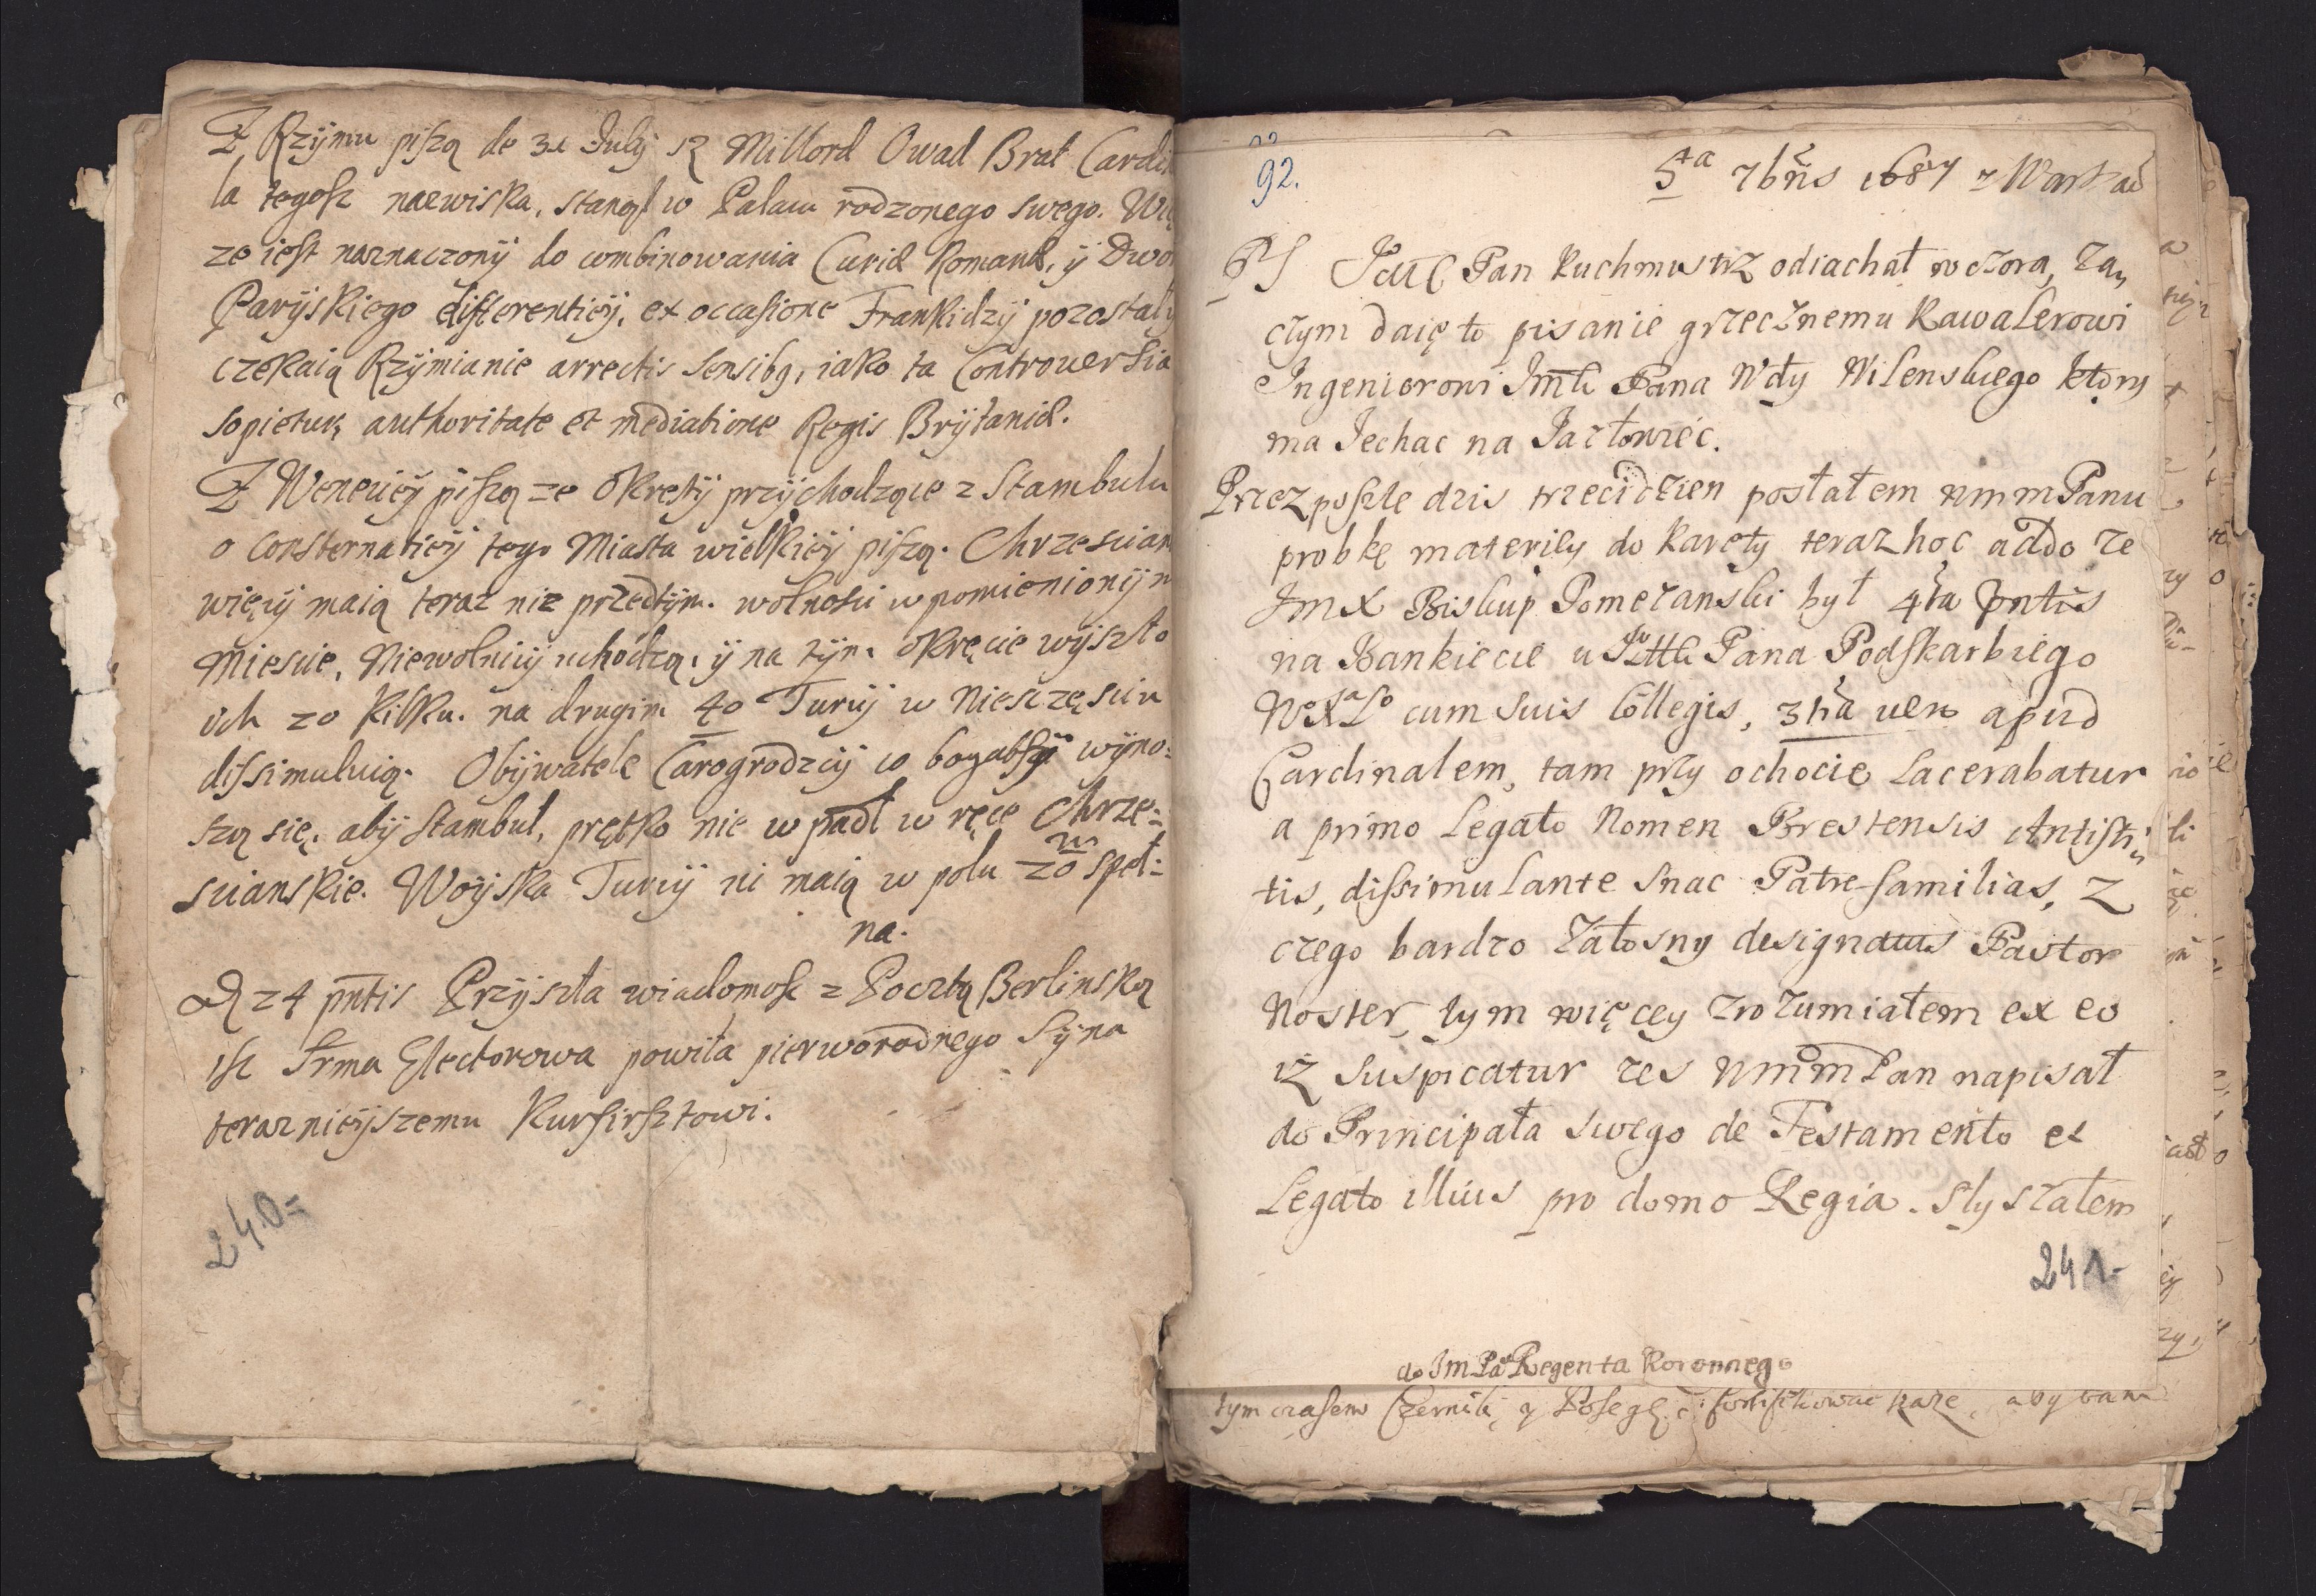 Z Rzÿmu piszą de 31 Julij iż Millord Owad Brat Cardi
la tegosz nazwiska, stanął w Pałacu rodzonego swego. Wi
ze iest naznaczonÿ do combinowania Curiæ Romanæ, ÿ Dwo
Parÿskiego differentieÿ, ex occasione Frankidzÿ pozostałÿ
czekaią Rzÿmianie arrectis sensibq, iako ta Controuersia
sopietur, authoritate et mediatione Regis Brÿtaniæ.
Z Weneciey piszą ze Okrętÿ przÿchodzące z Stambulu
o consternatieÿ tego Miasta wielkieÿ piszą. Chrzescian
więcÿ maią teraz niz przedtÿm. wolnosci w pomienionÿm
Miescie, Niewolnicÿ uchodzą, ÿ na tÿm okręcie wÿszło
ich 20 kilku. na drugim 40 Turcÿ w Niesczęsciu
dissimuluią. Obÿwatele Carogrodzcÿ co bogatsÿ wÿno:
szą się, abÿ Stambuł, prętko nie wpadł w ręce Chrze:
scianskie. Woÿska Turcÿ ni maią w polu 20 m speł:
na.
24 pntis Przÿszła wiadomosc z Pocztą Berlinską
isz Srma Electorowa powiła pierworodnego Sÿna
teraznieÿszemu Kurfirsztowi.
240=
92.
5ta 7bris 1687 z Warszaw
PS Pan Kuchmistrz odiachał wczora, za,,
czym daię to pisanie grzecznemu Kawalerowi
Ingenierowi Jmci Pana Wdy Wilenskiego który
ma Jechac na Jazłowiec.
Przez poszte dzis trzeci dzien posłałem wmmPanu
probkę materiey do karety teraz hoc addo ze
JmX Biskup Pomezanski był 4ta pntis
na Bankiecie u Pana Podskarbiego
WoXaLo cum suis Collegis, 3tia uero apud
Cardinalem, tam przy ochocie lacerabatur
a primo Legato Nomen Brestensis Antisti,,
tis, dissimulante snac Patre-familias, z
czego bardzo załosny designatus Pastor
Noster, tym więcey zrozumiałem ex eo
iż suspicatur zes WmmPan napisał
do Principała swego de Testamento et
Legato illius pro domo Regia. słyszałem
241-
do Jm Pa Regenta Koronnego
tym czasem Czernik, y fortifikowac kaze, aby tam